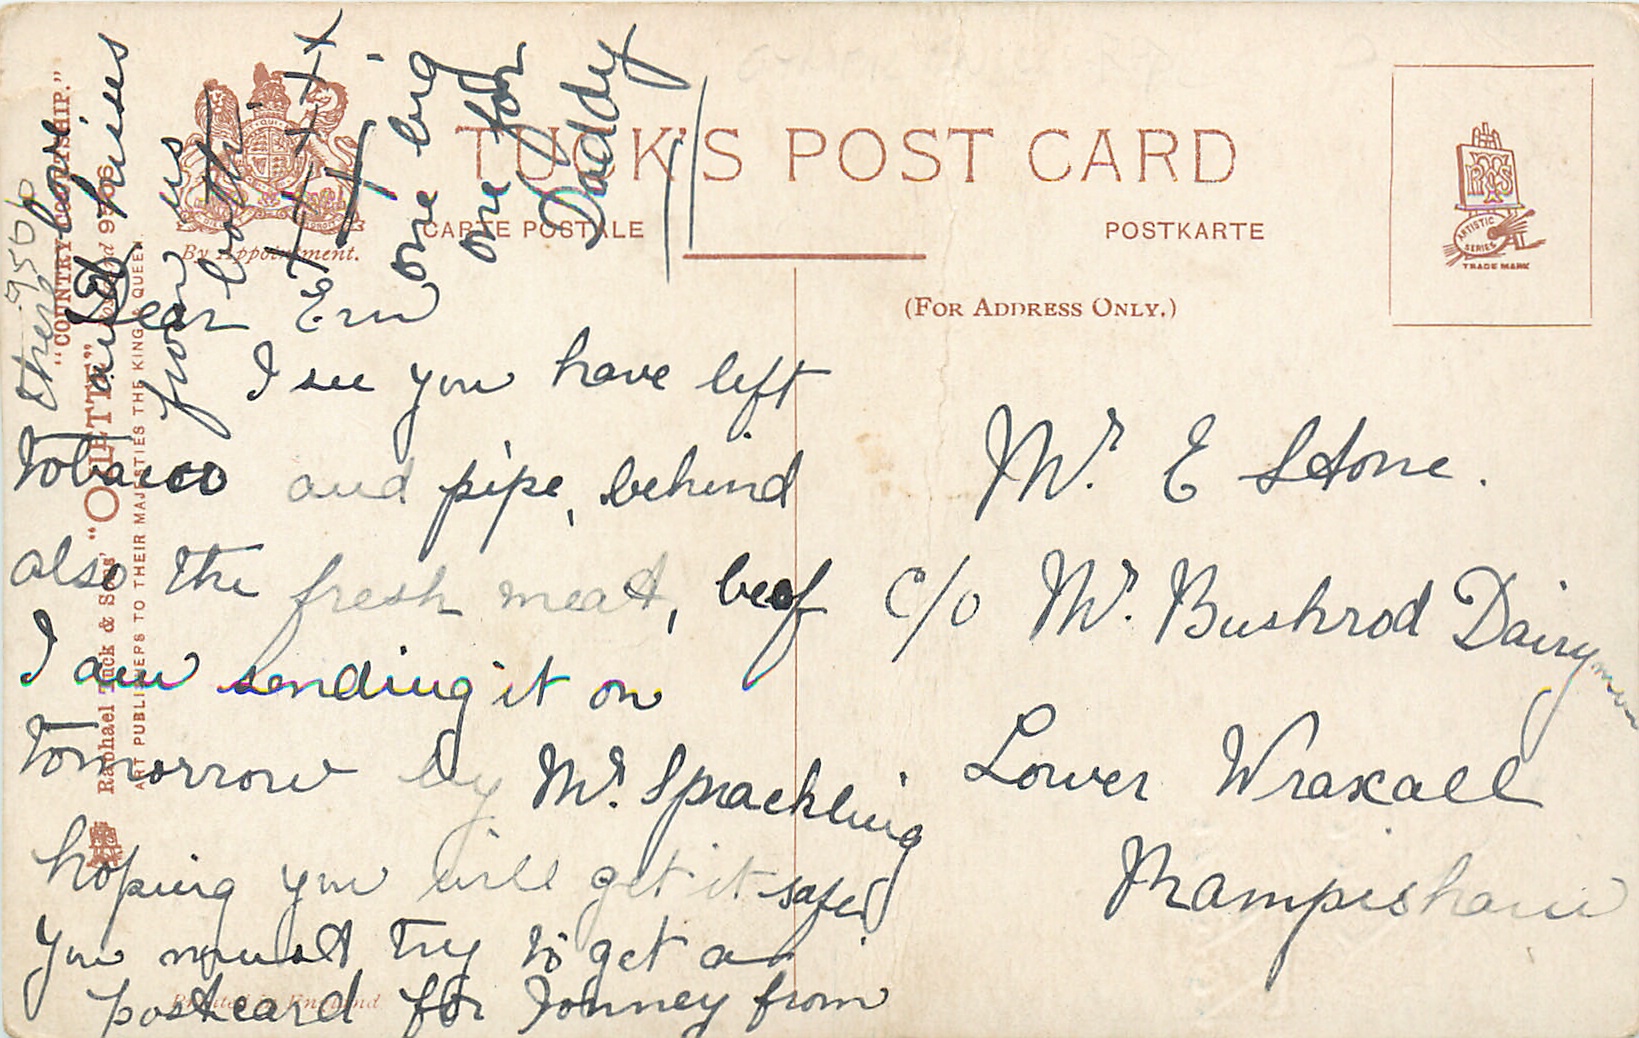 TUCK'S POST CARD
CARTE POSTALE
POSTKARTE
(FOR ADDRESS ONLY.)
By Appointment.
ARTISTIC SERIES
TRADE MARK
"COUNTRY COURTSHIP."
Raphael Tuck & Sons' "OILETTE"
ART PUBLISHERS TO THEIR MAJESTIES THE KING & QUEEN.
Printed in England
9506
Dear Ern
I see you have left
tobacco and pipe, behind
also the fresh meat, beef
I am sending it on
tomorrow by Mr. Sprackling
hoping you will get it safe
you must try to get a
postcard for Jonney from
there love
and kisses
from us
both
++++++
+
one big
one for
Daddy
Mr. E Stone.
c/o Mr. Bushrod Dairyman
Lower Wraxall
Rampisham